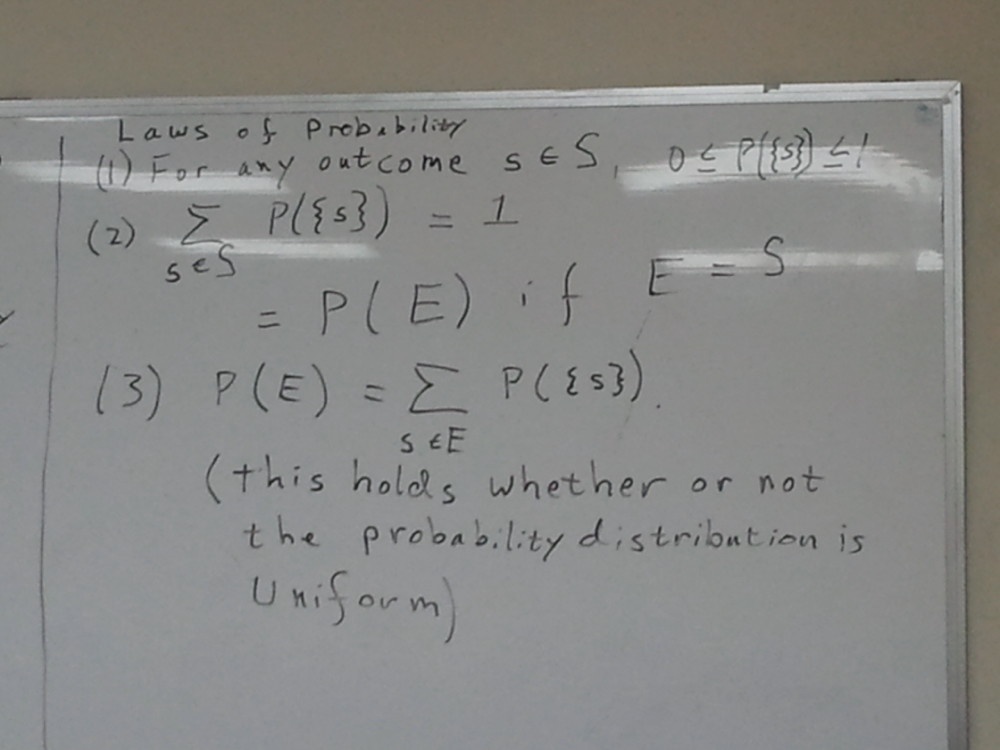 Laws of Probability
(1) For any outcome s ∈ S, 0 ≤ P({s}) ≤ 1
(2) ∑ P({s}) = 1
s ∈ S
= P(E) if E = S
(3) P(E) = ∑ P({s}).
s ∈ E
(this holds whether or not
the probability distribution is
Uniform)